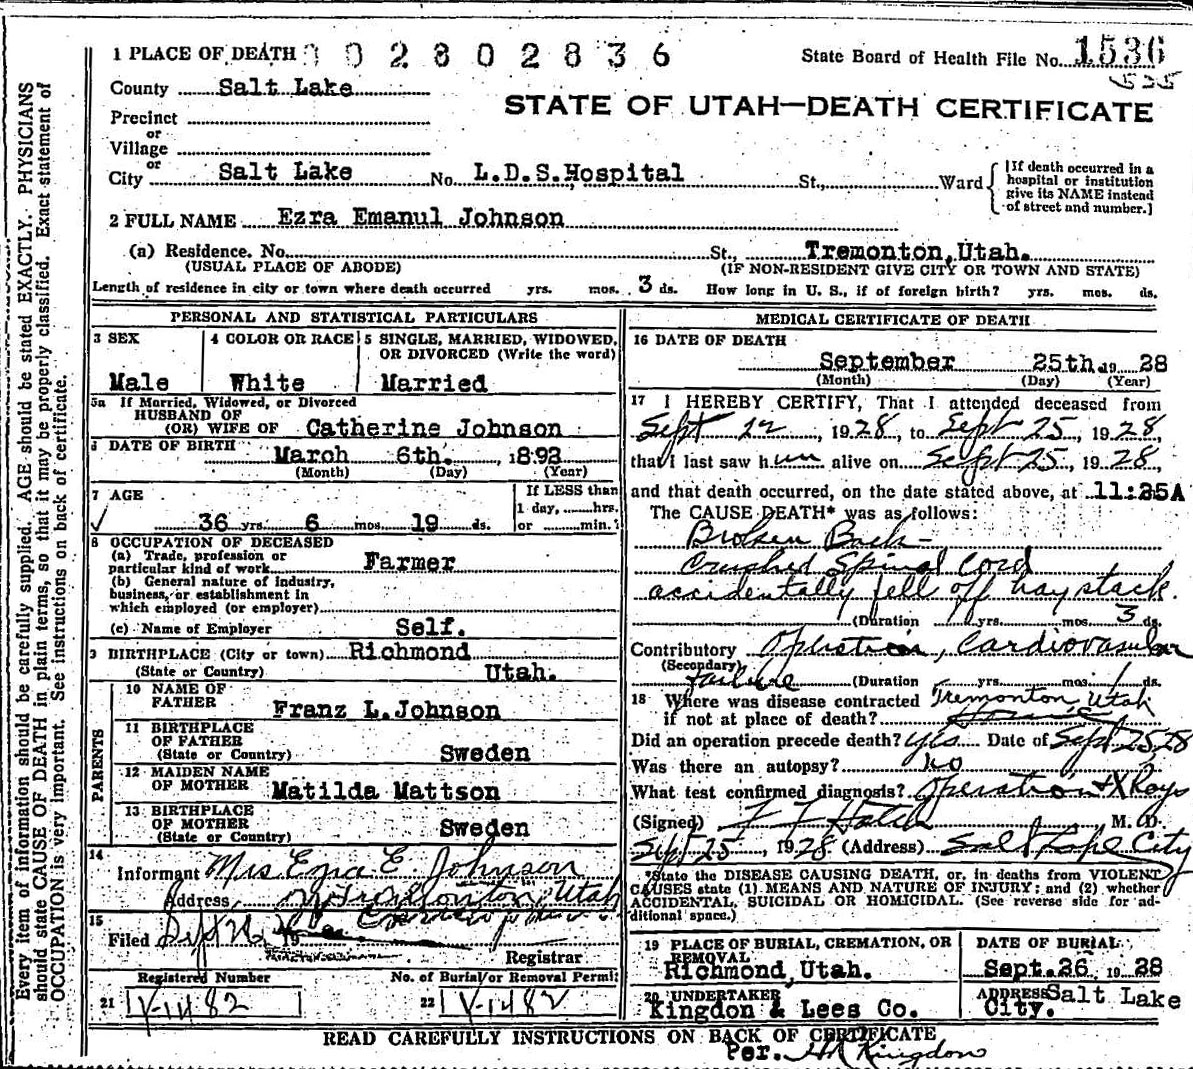 1 PLACE OF DEATH 0 0 2 8 0 2 8 3 6
State Board of Health File No. 1536
535
County Salt Lake
STATE OF UTAH—DEATH CERTIFICATE
Precinct
or
Village
or
City Salt Lake No. L.D.S. Hospital St., Ward
[If death occurred in a
hospital or institution
give its NAME instead
of street and number.]
2 FULL NAME Ezra Emanul Johnson
(a) Residence. No. St., Tremonton, Utah.
(USUAL PLACE OF ABODE) (IF NON-RESIDENT GIVE CITY OR TOWN AND STATE)
Length of residence in city or town where death occurred yrs. mos. 3 ds. How long in U. S., if of foreign birth? yrs. mos. ds.
PERSONAL AND STATISTICAL PARTICULARS
3 SEX
Male
4 COLOR OR RACE
White
5 SINGLE, MARRIED, WIDOWED,
OR DIVORCED (Write the word)
Married
5a If Married, Widowed, or Divorced
HUSBAND OF
(OR) WIFE OF Catherine Johnson
6 DATE OF BIRTH
March 6th. 1892
(Month) (Day) (Year)
7 AGE
36 yrs. 6 mos. 19 ds.
If LESS than
1 day, hrs.
or min.?
8 OCCUPATION OF DECEASED
(a) Trade, profession or
particular kind of work Farmer
(b) General nature of industry,
business, or establishment in
which employed (or employer)
(c) Name of Employer Self.
9 BIRTHPLACE (City or town) Richmond
(State or Country) Utah.
PARENTS
10 NAME OF
FATHER Franz L. Johnson
11 BIRTHPLACE
OF FATHER
(State or Country) Sweden
12 MAIDEN NAME
OF MOTHER Matilda Mattson
13 BIRTHPLACE
OF MOTHER
(State or Country) Sweden
14
Informant Mrs Ezra E. Johnson
Address, Tremonton, Utah
15
Filed Sept 26 19
Registrar
Registered Number No. of Burial or Removal Permit
21 Y-1482 22 Y-1482
MEDICAL CERTIFICATE OF DEATH
16 DATE OF DEATH
September 25th. 19 28
(Month) (Day) (Year)
17 I HEREBY CERTIFY, That I attended deceased from
Sept 22, 1928, to Sept 25, 1928,
that I last saw him alive on Sept 25, 1928,
and that death occurred, on the date stated above, at 11:35A
The CAUSE DEATH* was as follows:
Broken Back—
Crushed Spinal Cord
accidentally fell off haystack.
(Duration yrs. mos. 3 ds.
Contributory Operation, Cardiovascular
(Secondary)
failure (Duration yrs. mos. 1 ds.
18 Where was disease contracted Tremonton, Utah
if not at place of death?
Did an operation precede death? yes Date of Sept 25 28
Was there an autopsy? no
What test confirmed diagnosis? Operation + X Rays
(Signed) F F Hatch M. D.
Sept 25, 1928 (Address) Salt Lake City
*State the DISEASE CAUSING DEATH, or, in deaths from VIOLENT
CAUSES state (1) MEANS AND NATURE OF INJURY; and (2) whether
ACCIDENTAL, SUICIDAL OR HOMICIDAL. (See reverse side for ad-
ditional space.)
19 PLACE OF BURIAL, CREMATION, OR
REMOVAL
Richmond, Utah.
DATE OF BURIAL
Sept. 26 19 28
20 UNDERTAKER
Kingdon & Lees Co.
ADDRESS Salt Lake
City.
READ CAREFULLY INSTRUCTIONS ON BACK OF CERTIFICATE
Per. H R Kingdon
Every item of information should be carefully supplied. AGE should be stated EXACTLY. PHYSICIANS
should state CAUSE OF DEATH in plain terms, so that it may be properly classified. Exact statement of
OCCUPATION is very important. See instructions on back of certificate.